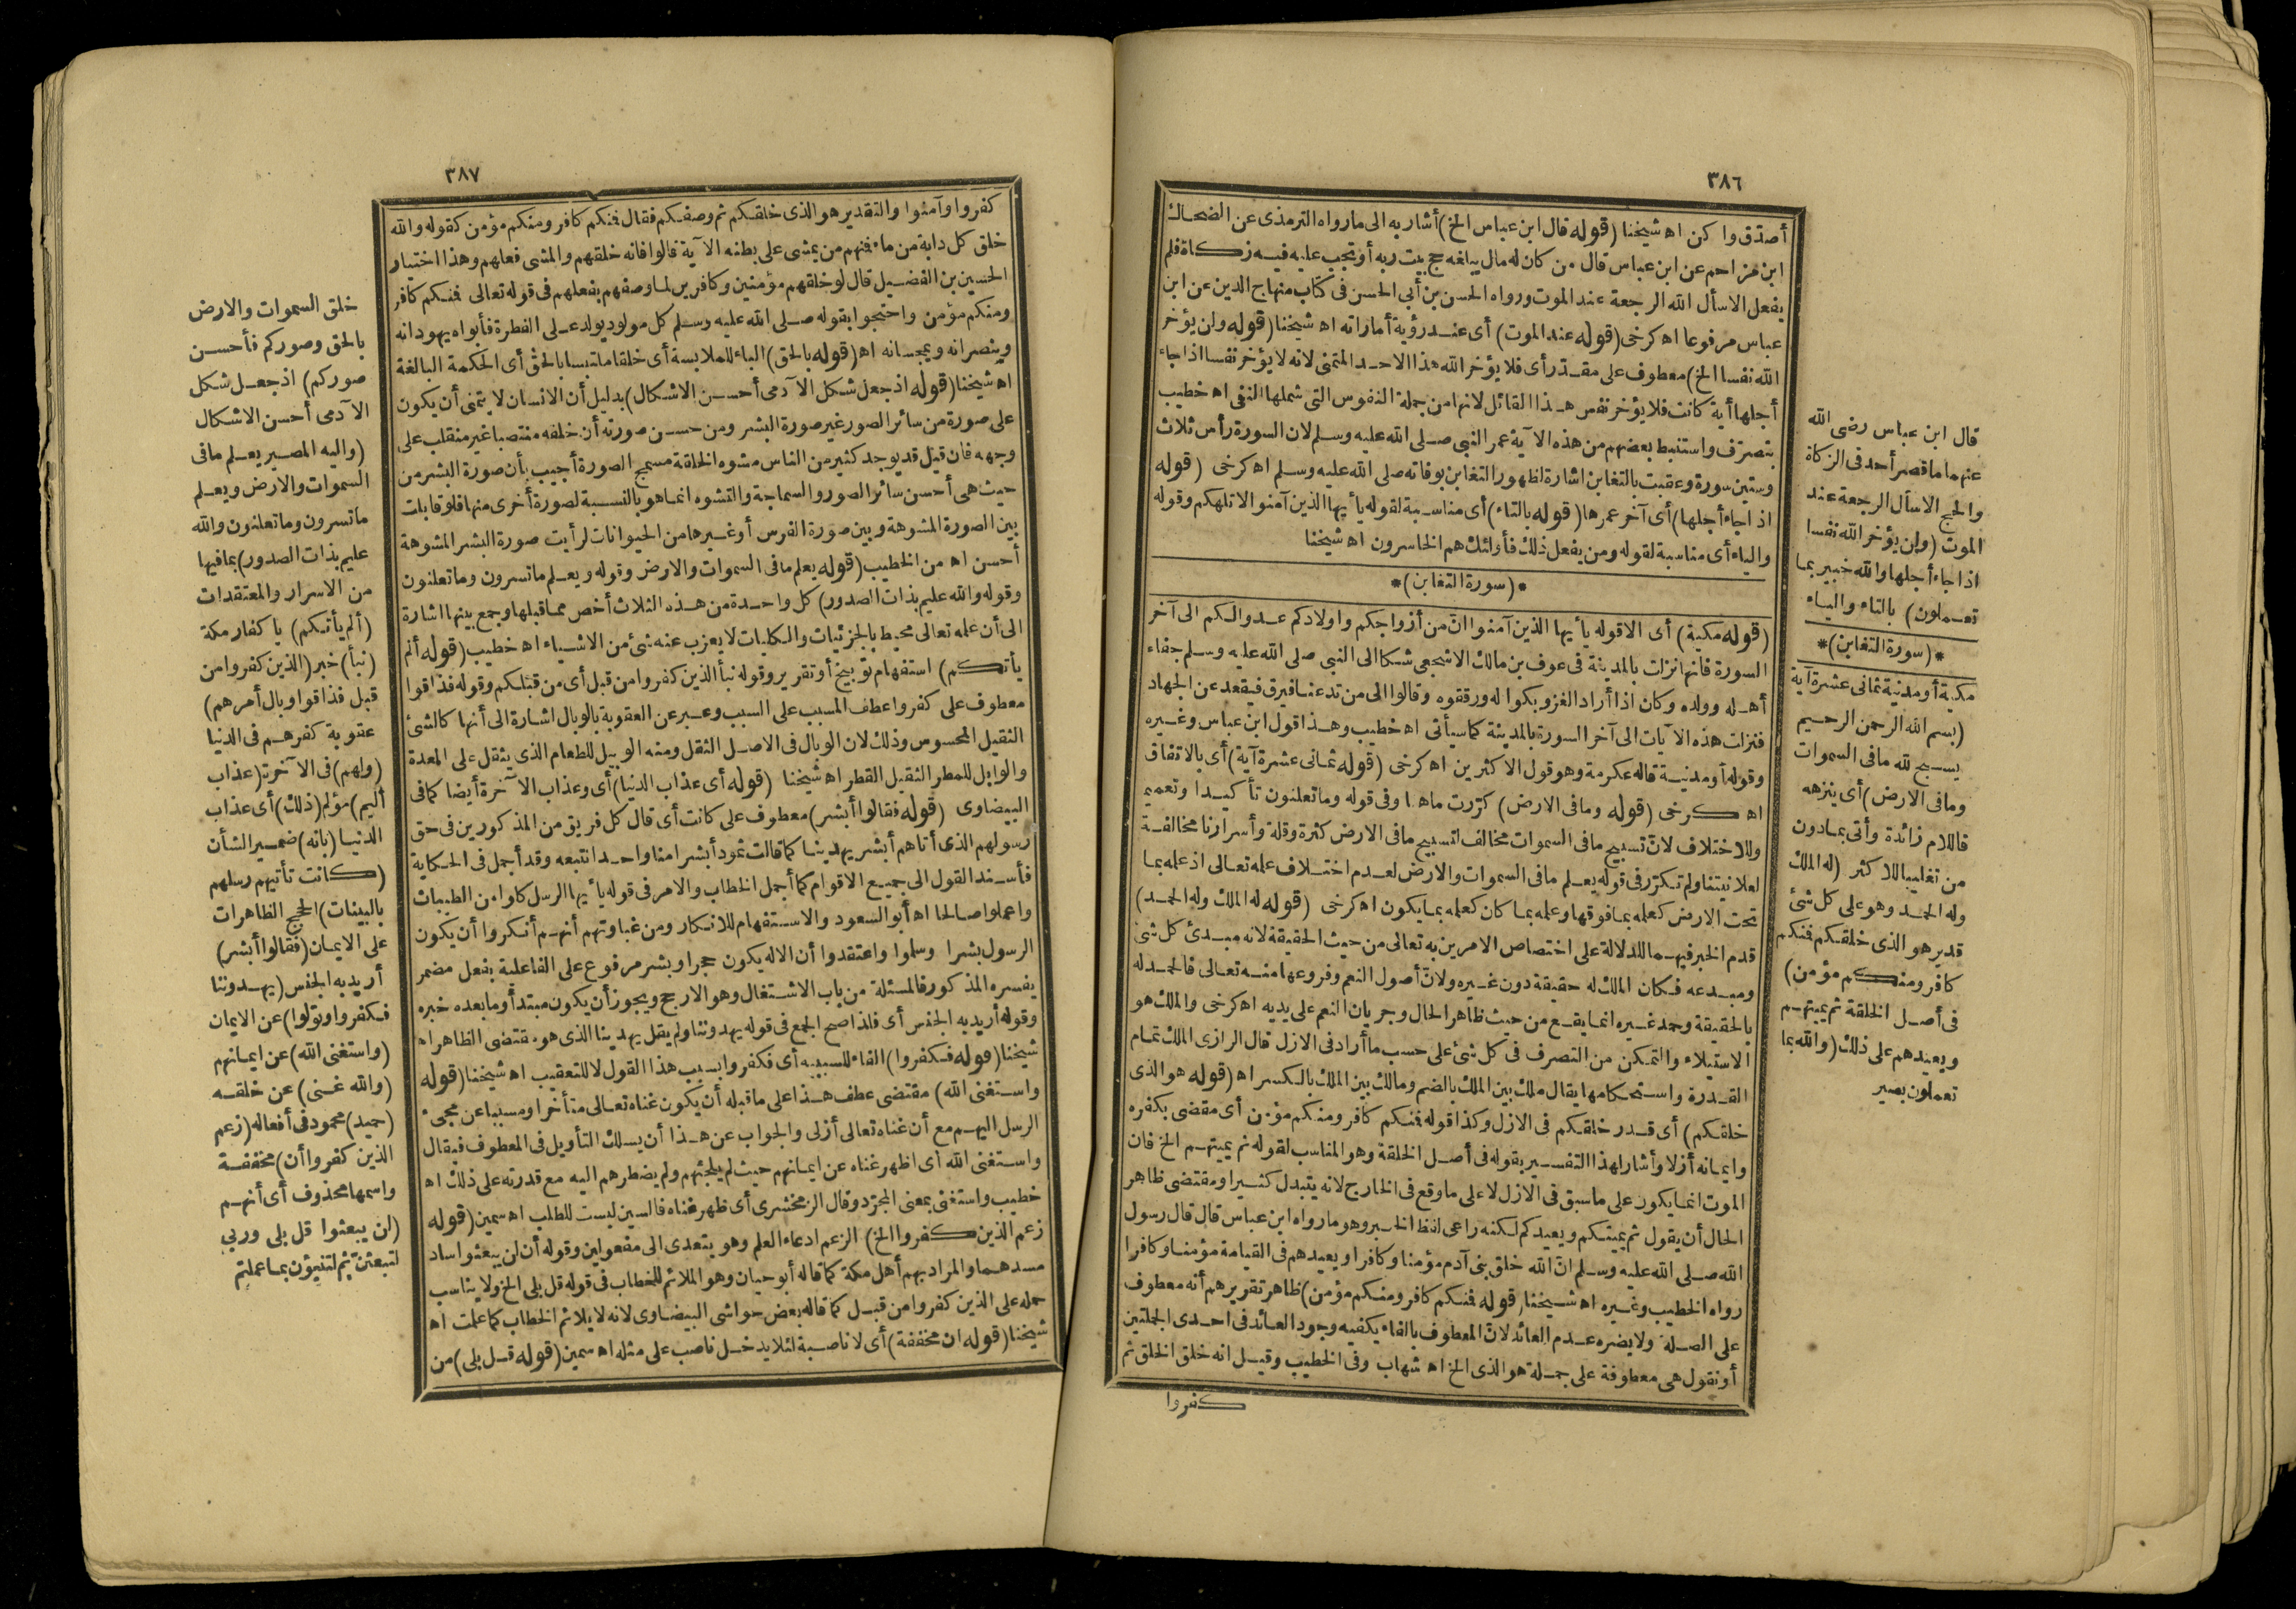 ٣٨٦
أصدّق وا كن اه شيخنا (قوله قال ابن عباس الخ) أشار به الى مارواه الترمذى عن الضحاك
ابن مزاحم عن ابن عباس قال من كان له مال يبلغه حج بيت ربه أو تجب عليه فيه زكاة فلم
يفعل الاسأل الله الرجعة عند الموت ورواه الحسن بن أبى الحسن فى كتاب منهاج الدين عن ابن
عباس مرفوعا اه كرخى (قوله عند الموت) أى عند رؤية أماراته اه شيخنا (قوله ولن يؤخر
الله نفسا الخ) معطوف على مقدّر أى فلا يؤخر الله هذا الاحد المتمنى لانه لا يؤخر نفسا اذا جاء
أجلها أية كانت فلا يؤخر نفس هذا القائل لانها من جملة النفوس التى شملها النفى اه خطيب
بتصرّف واستنبط بعضهم من هذه الآية عمر النبى صلى الله عليه وسلم لان السورة رأس ثلاث
وستين سورة وعقبت بالتغابن اشارة لظهور التغابن بوفاته صلى الله عليه وسلم اه كرخى (قوله
اذا جاء أجلها) أى آخر عمرها (قوله بالتاء) أى مناسبة لقوله يأيها الذين آمنوا لا تلهكم وقوله
والياء أى مناسبة لقوله ومن يفعل ذلك فأولئك هم الخاسرون اه شيخنا
*(سورة التغابن)*
(قوله مكية) أى الاقوله يأيها الذين آمنوا انّ من أزواجكم وأولادكم عدوا لكم الى آخر
السورة فانها نزلت بالمدينة فى عوف بن مالك الاشجعى شكا الى النبى صلى الله عليه وسلم جفاء
أهله وولده وكان اذا أراد الغزو بكوا له ورققوه وقالوا الى من تدعنا فيرق فيقعد عن الجهاد
فنزلت هذه الآيات الى آخر السورة بالمدينة كما سيأتى اه خطيب وهذا قول ابن عباس وغيره
وقوله أو مدنية قاله عكرمة وهو قول الاكثرين اه كرخى (قوله ثمانى عشرة آية) أى بالاتفاق
اه كرخى (قوله ومافى الارض) كرّرت ما هنا وفى قوله وما تعلنون تأكيدا وتعميم
وللاختلاف لانّ تسبيح مافى السموات مخالف لتسبيح مافى الارض كثرة وقلة وأسرارنا مخالفة
لعلانيتنا ولم تكرّر فى قوله يعلم مافى السموات والارض لعدم اختلاف علمه تعالى اذ علمه بما
تحت الارض كعلمه بما فوقها وعلمه بما كان كعلمه بما يكون اه كرخى (قوله له الملك وله الحمد)
قدم الخبر فيهما للدلالة على اختصاص الامرين به تعالى من حيث الحقيقة لانه مبدئ كل شئ
ومبدعه فكان الملك له حقيقة دون غيره ولانّ أصول النعم وفروعها منه تعالى فالحمد له
بالحقيقة وحمد غيره انما يقع من حيث ظاهر الحال وجريان النعم على يديه اه كرخى والملك هو
الاستيلاء والتمكن من التصرف فى كل شئ على حسب ما أراد فى الازل قال الرازى الملك تمام
القدرة واستحكامها يقال ملك بين الملك بالضم ومالك بين الملك بالكسر اه (قوله هو الذى
خلقكم) أى قدر خلقكم فى الازل وكذا قوله فنكم كافر ومنكم مؤمن أى مقضى بكفره
وايمانه أزلا وأشار لهذا التفسير بقوله فى أصل الخلقة وهو المناسب لقوله ثم يميتهم الخ فان
الموت انما يكون على ما سبق فى الازل لا على ما وقع فى الخارج لانه يتبدل كثيرا ومقتضى ظاهر
الحال أن يقول ثم يميتكم ويعيدكم لكنه راعى لفظ الخبر وهو مارواه ابن عباس قال قال رسول
الله صلى الله عليه وسلم انّ الله خلق بنى آدم مؤمنا وكافرا ويعيدهم فى القيامة مؤمنا وكافرا
رواه الخطيب وغيره اه شيخنا (قوله فنكم كافر ومنكم مؤمن) ظاهر تقريرهم أنه معطوف
على الصلة ولا يضره عدم العائد لانّ المعطوف بالفاء يكفيه وجود العائد فى احدى الجملتين
أو نقول هى معطوفة على جملة هو الذى الخ اه شهاب وفى الخطيب وقيل انه خلق الخلق ثم
كفروا
قال ابن عباس رضى الله
عنهما ما قصر أحد فى الزكاة
والحج الاسأل الرجعة عند
الموت (ولن يؤخر الله نفسا
اذا جاء أجلها والله خبير بما
تعملون) بالتاء والياء
*(سورة التغابن)*
مكية أو مدنية ثمانى عشرة آية
(بسم الله الرحمن الرحيم
يسبح لله مافى السموات
ومافى الارض) أى ينزهه
فاللام زائدة وأتى بما دون
من تغليبا للاكثر (له الملك
وله الحمد وهو على كل شئ
قدير هو الذى خلقكم فنكم
كافر ومنكم مؤمن)
فى أصل الخلقة ثم يميتهم
ويعيدهم على ذلك (والله بما
تعملون بصير
٣٨٧
كفروا وآمنوا والتقدير هو الذى خلقكم ثم وصفكم فقال فنكم كافر ومنكم مؤمن كقوله والله
خلق كل دابة من ماء فنهم من يمشى على بطنه الآية قالوا فانه خلقهم والمشى فعلهم وهذا اختيار
الحسين بن الفضيل قال لو خلقهم مؤمنين وكافرين لما وصفهم بفعلهم فى قوله تعالى فنكم كافر
ومنكم مؤمن واحتجوا بقوله صلى الله عليه وسلم كل مولود يولد على الفطرة فأبواه يهودانه
وينصرانه ويمجسانه اه (قوله بالحق) الباء للملابسة أى خلقا ملتبسا بالحق أى الحكمة البالغة
اه شيخنا (قوله اذ جعل شكل الآدمى أحسن الاشكال) بدليل أن الانسان لا يتمنى أن يكون
على صورة من سائر الصور غير صورة البشر ومن حسن صورته أن خلقه منتصبا غير منقلب على
وجهه فان قيل قد يوجد كثير من الناس مشوه الخلقة مسمج الصورة أجيب بأن صورة البشر من
حيث هى أحسن سائر الصور والسماجة والتشوه انما هو بالنسبة لصورة أخرى منها فلو قابلت
بين الصورة المشوهة وبين صورة الفرس أو غيرها من الحيوانات لرأيت صورة البشر المشوهة
أحسن اه من الخطيب (قوله يعلم مافى السموات والارض وقوله ويعلم ماتسرون وماتعلنون
وقوله والله عليم بذات الصدور) كل واحدة من هذه الثلاث أخص مما قبلها وجمع بينها اشارة
الى أن علمه تعالى محيط بالجزئيات والكليات لا يعزب عنه شئ من الاشياء اه خطيب (قوله ألم
يأتكم) استفهام توبيخ أو تقرير وقوله نبأ الذين كفروا من قبل أى من قبلكم وقوله فذاقوا
معطوف على كفروا عطف المسبب على السبب وعبر عن العقوبة بالوبال اشارة الى أنها كالشئ
الثقيل المحسوس وذلك لان الوبال فى الاصل الثقل ومنه الوبيل للطعام الذى يثقل على المعدة
والوابل للمطر الثقيل القطر اه شيخنا (قوله أى عذاب الدنيا) أى وعذاب الآخرة أيضا كما فى
البيضاوى (قوله فقالوا أبشر) معطوف على كانت أى قال كل فريق من المذكورين فى حق
رسولهم الذى أتاهم أبشر يهدينا كما قالت ثمود أبشرا منا واحدا نتبعه وقد أجمل فى الحكاية
فأسند القول الى جميع الاقوام كما أجمل الخطاب والامر فى قوله يأيها الرسل كلوا من الطيبات
واعملوا صالحا اه أبو السعود والاستفهام للانكار ومن غباوتهم أنهم أنكروا أن يكون
الرسول بشرا وسلموا واعتقدوا أن الاله يكون حجرا وبشر مرفوع على الفاعلية بفعل مضمر
يفسره المذكور فالمسئلة من باب الاشتغال وهو الارجح ويجوز أن يكون مبتدأ وما بعده خبره
وقوله أريد به الجنس أى فلذا صح الجمع فى قوله يهدوننا ولم يقل يهدينا الذى هو مقتضى الظاهر اه
شيخنا (قوله فكفروا) الفاء للسببية أى فكفروا بسبب هذا القول لا للتعقيب اه شيخنا (قوله
واستغنى الله) مقتضى عطف هذا على ما قبله أن يكون غناه تعالى متأخرا ومسببا عن مجىء
الرسل اليهم مع أن غناه تعالى أزلى والجواب عن هذا أن يسلك التأويل فى المعطوف فيقال
واستغنى الله أى اظهر غناه عن ايمانهم حيث لم يلجئهم ولم يضطرهم اليه مع قدرته على ذلك اه
خطيب واستغنى بمعنى المجرّد وقال الزمخشرى أى ظهر غناه فالسين ليست للطلب اه سمين (قوله
زعم الذين كفروا الخ) الزعم ادعاء العلم وهو يتعدى الى مفعولين وقوله أن لن يبعثوا ساد
مسدهما والمراد بهم أهل مكة كما قاله أبو حيان وهو الملائم للخطاب فى قوله قل بلى الخ ولا يناسب
حمله على الذين كفروا من قبل كما قاله بعض حواشى البيضاوى لانه لا يلائم الخطاب كما علمت اه
شيخنا (قوله ان مخففة) أى لا ناصبة لئلا يدخل ناصب على مثله اه سمين (قوله قل بلى) من
خلق السموات والارض
بالحق وصوركم فأحسن
صوركم) اذ جعل شكل
الآدمى أحسن الاشكال
(واليه المصير يعلم مافى
السموات والارض ويعلم
ماتسرون وماتعلنون والله
عليم بذات الصدور) بما فيها
من الاسرار والمعتقدات
(ألم يأتكم) يا كفار مكة
(نبأ) خبر (الذين كفروا من
قبل فذاقوا وبال أمرهم)
عقوبة كفرهم فى الدنيا
(ولهم) فى الآخرة (عذاب
أليم) مؤلم (ذلك) أى عذاب
الدنيا (بانه) ضمير الشأن
(كانت تأتيهم رسلهم
بالبينات) الحجج الظاهرات
على الايمان (فقالوا أبشر)
أريد به الجنس (يهدوننا
فكفروا وتولوا) عن الايمان
(واستغنى الله) عن ايمانهم
(والله غنى) عن خلقه
(حميد) محمود فى أفعاله (زعم
الذين كفروا أن) مخففة
واسمها محذوف أى أنهم
(لن يبعثوا قل بلى وربى
لتبعثنّ ثم لتنبؤن بما عملتم